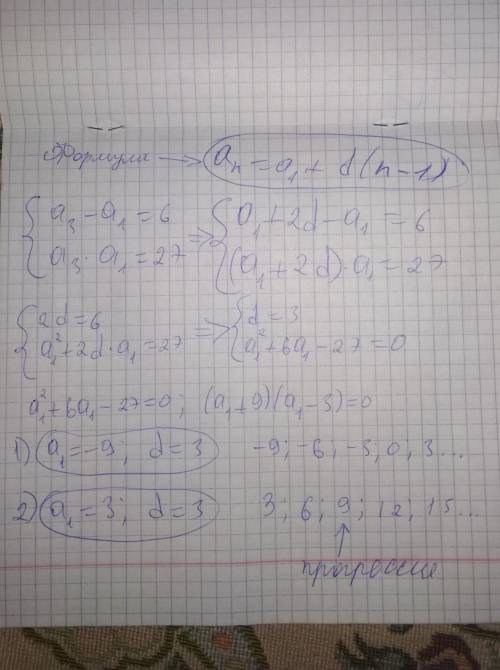 Формула → aₙ = a₁ + d(n-1)
{ a₃ - a₁ = 6 => { a₁ + 2d - a₁ = 6
a₃ · a₁ = 27 (a₁ + 2d) · a₁ = 27
{ 2d = 6 => { d = 3
a₁² + 2d · a₁ = 27 a₁² + 6a₁ - 27 = 0
a₁² + 6a₁ - 27 = 0; (a₁ + 9)(a₁ - 3) = 0
1) a₁ = -9; d = 3 -9; -6; -3; 0; 3...
2) a₁ = 3; d = 3 3; 6; 9; 12; 15...
↑
прогрессия